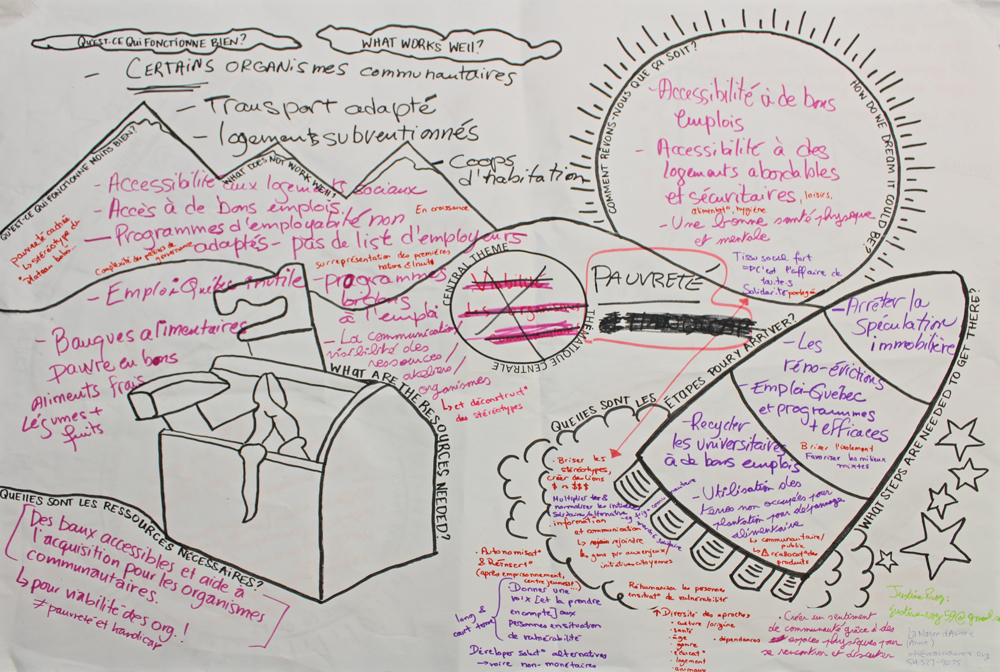 QU'EST-CE QUI FONCTIONNE BIEN?
WHAT WORKS WELL?
- CERTAINS ORGANISMES communautaires
- Transport adapté
- logements subventionnés
- Coops d'habitation
QU'EST-CE QUI FONCTIONNE MOINS BIEN?
WHAT DOES NOT WORK WELL?
- Accessibilité aux logements sociaux
- Accès à de bons emplois
En croissance
- Programmes d'employabilité non
adaptés - pas de list d'employeurs
pauvreté cachée
↳ stéréotype du
plateau
Complexité des paliers de
gouvernance
- Emploi-Québec inutile
sur représentation des premières
nations
- programmes
à l'emploi
- La communication/
visibilité des
ressources/
ateliers/
organismes
↳ et déconstruct°
des stéréotypes
- Banques alimentaires
pauvre en bons
aliments frais
légumes +
fruits
CENTRAL THEME
THÉMATIQUE CENTRALE
PAUVRETÉ
COMMENT RÊVONS-NOUS QUE ÇA SOIT?
HOW DO WE DREAM IT COULD BE?
- Accessibilité à de bons
emplois
- Accessibilité à des
logements abordables
et sécuritaires, loisirs,
alimentat°, hygiène
- Une bonne santé physique
et mentale
Tissu social fort
=> C'est l'affaire de
tou.te.s
Solidarité partagée
QUELLES SONT LES ÉTAPES POUR Y ARRIVER?
WHAT STEPS ARE NEEDED TO GET THERE?
- Arrêter la
spéculation
immobilière
- Les
réno-évictions
- Emploi-Québec
et programmes
+ efficaces
Briser l'isolement
Favoriser les milieux
mixtes
- Recycler
les universitaires
à de bons emplois
- Utilisation des
terres non occupées pour
plantation pour dépannage
alimentaire
↳ communautaire/
public
↳ Δ réallocat° des
produits
- Briser les
stéréotypes,
créer des liens
$ ≠ $$$
Multiplier et
normaliser les initiatives
Solidaire/alternative
information
et communication
↳ rejoindre
les gens par enjeux/
initiatives citoyennes
WHAT ARE THE RESOURCES NEEDED?
QUELLES SONT LES RESSOURCES NÉCESSAIRES?
Des baux accessibles et aide à
l'acquisition pour les organismes
communautaires.
↳ pour viabilité des org.!
≠ pauvreté et handicap
- Autonomisat°
& Réinsert°
(après emprisonnement,
centre jeunesse)
long &
court terme
Donner une
voix [et la prendre
en compte] aux
personnes en situation
de vulnérabilité
Développer solut° alternatives
→ voire non-monétaires
Réhumaniser les personnes
en situat° de vulnérabilité
↑ Diversité des approches
- culture/origine
- santé
- âge
- genre
- éducat°
- logement
- animaux
- dépendances
- Créer un sentiment
de communauté grâce à des
espaces physiques pour
se rencontrer et discuter